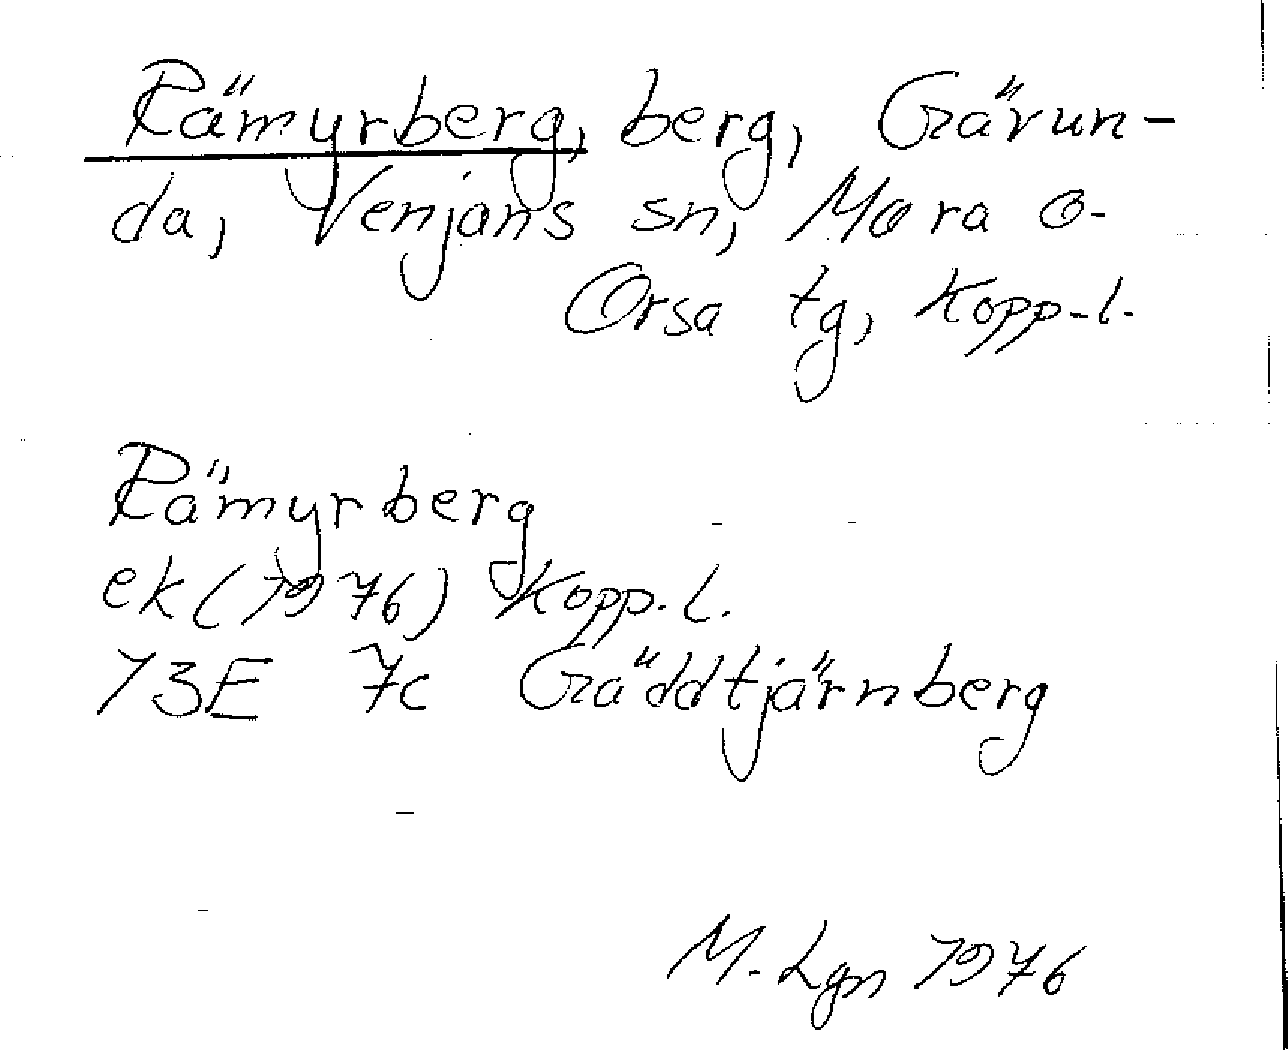 Rämyrberg, berg, Gävun-
da, Venjans sn, Mora o-
Orsa tg, Kopp-l.
Rämyrberg
ek (1976) Kopp. l.
13E 7c Gäddtjärnberg
M. Lgn 1976